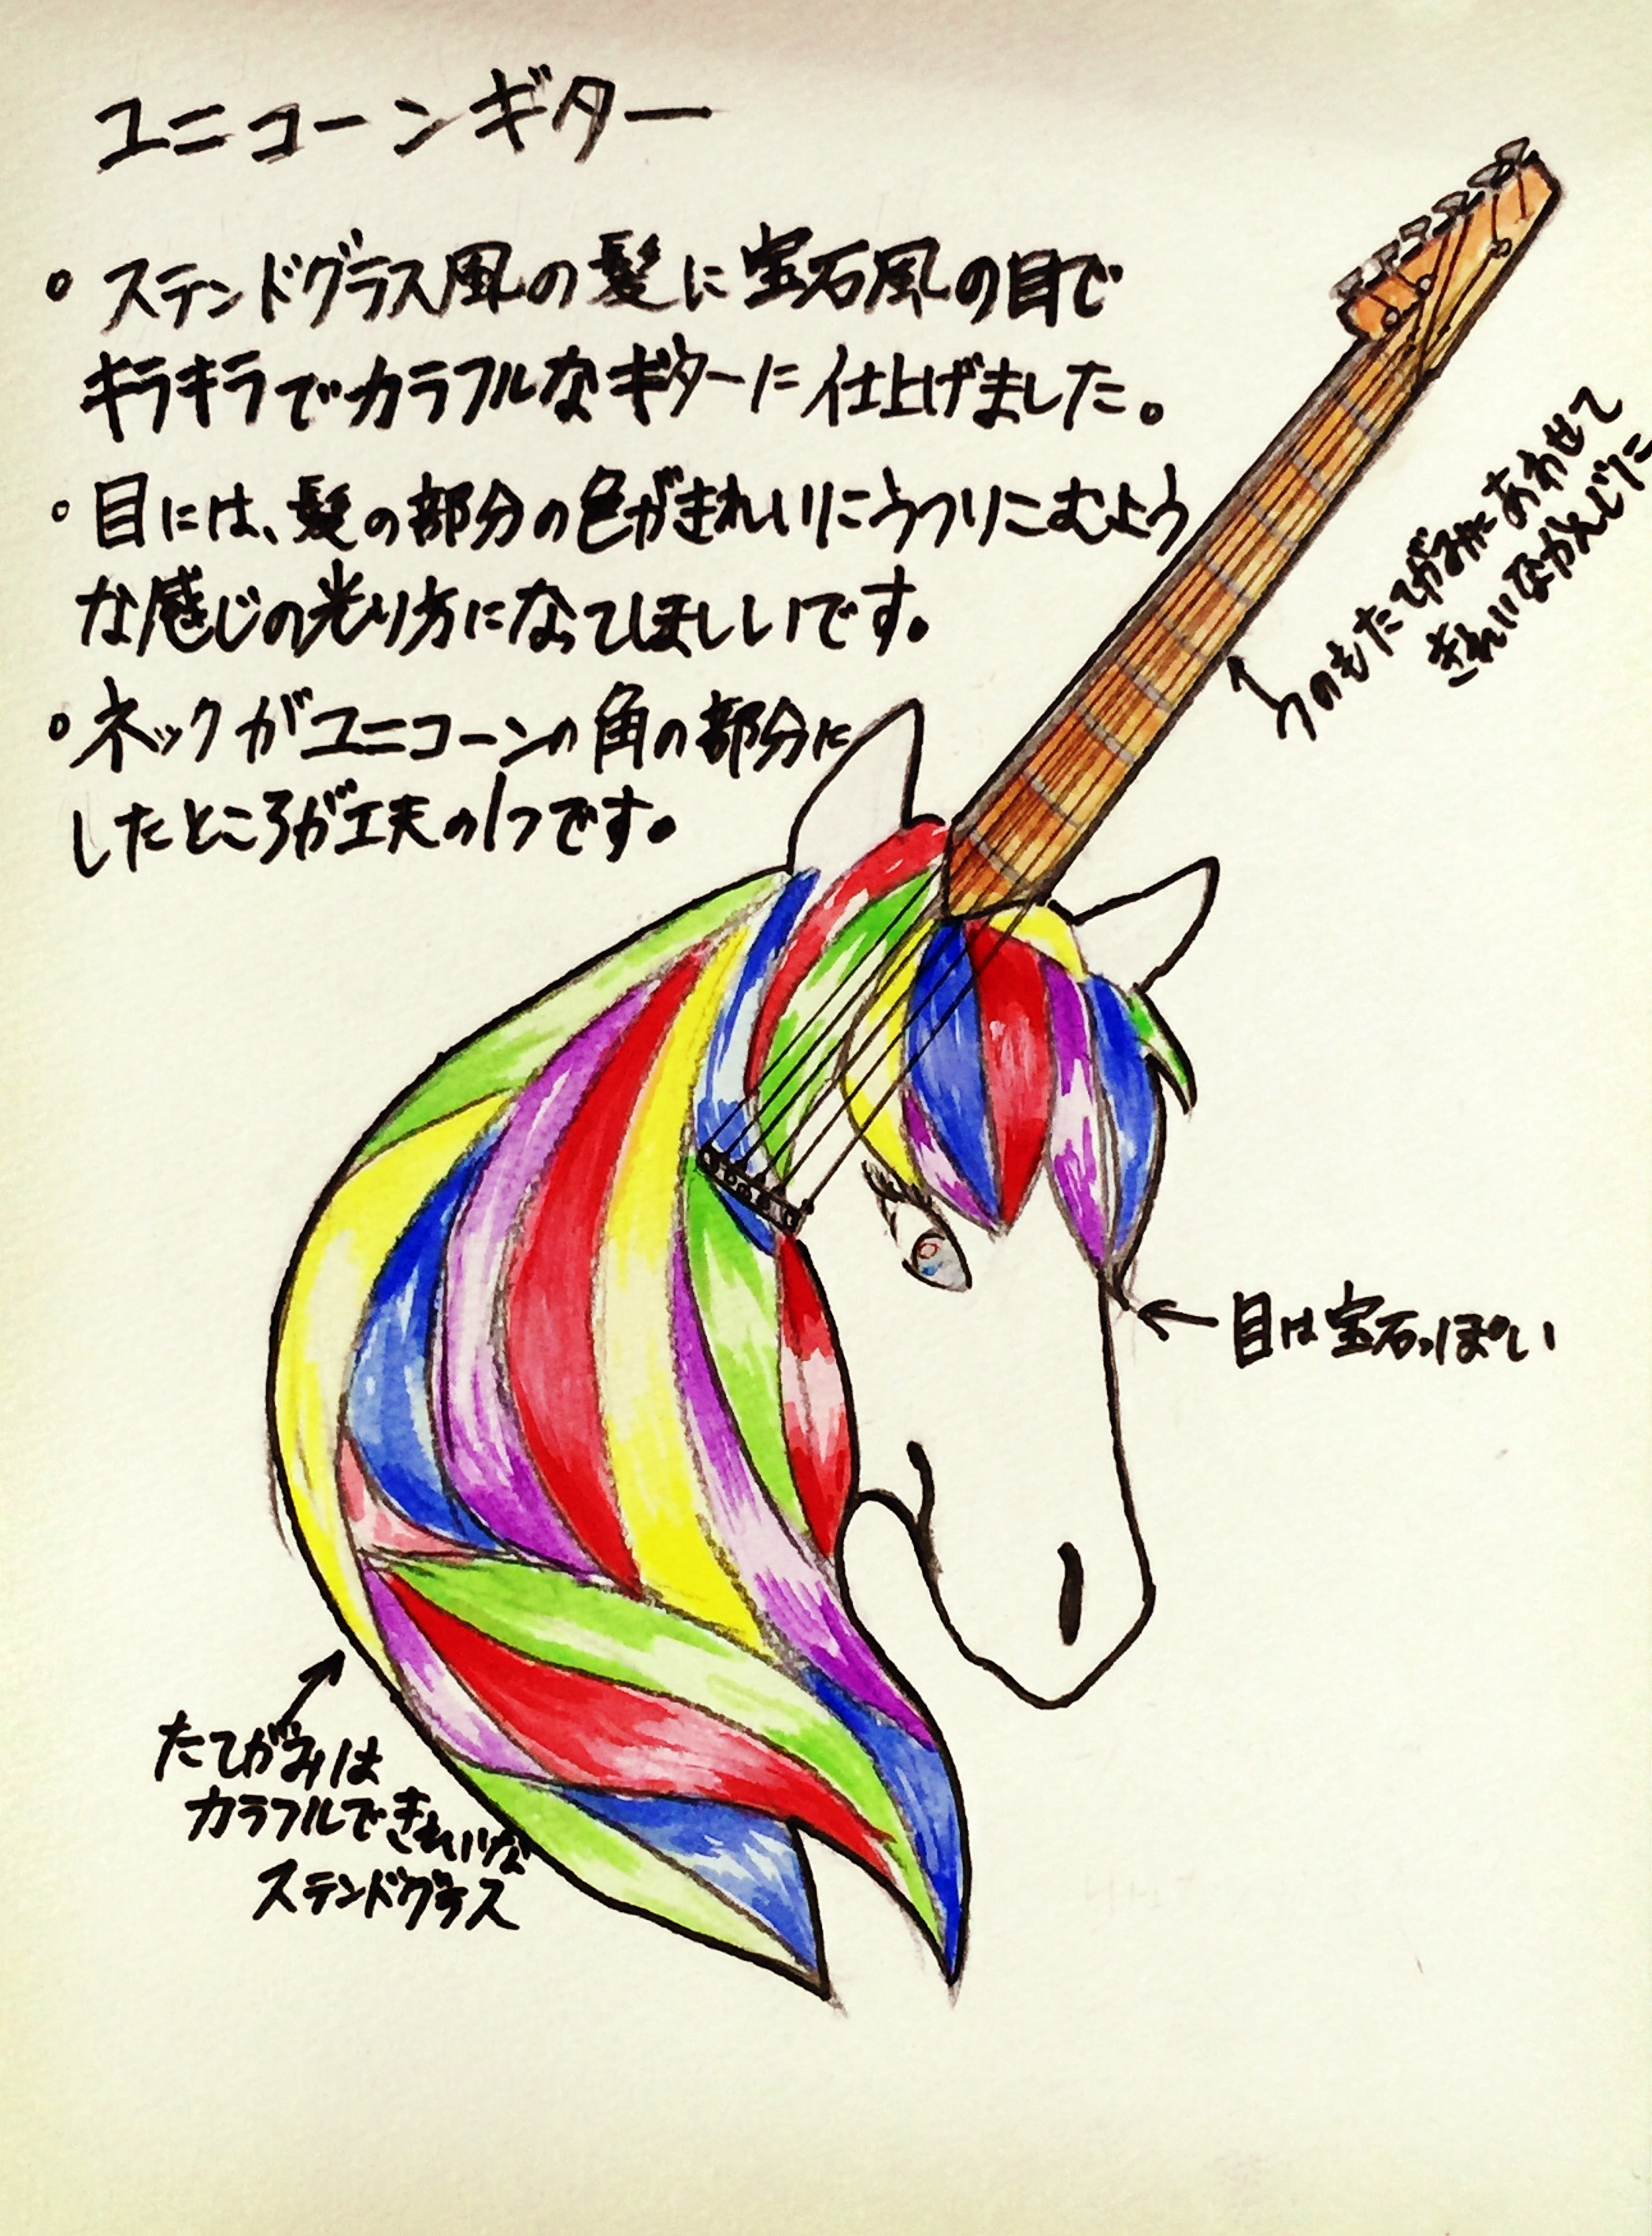 ユニコーンギター
。ステンドグラス風の髪に宝石風の目で
キラキラでカラフルなギターに仕上げました。
。目には、髪の部分の色がきれいにうつりこむよう
な感じの光り方になってほしいです。
。ネックがユニコーンの角の部分に
したところが工夫の1つです。
つのもたてがみにあわせて
きれいなかんじに
目は宝石っぽい
たてがみは
カラフルできれいな
ステンドグラス